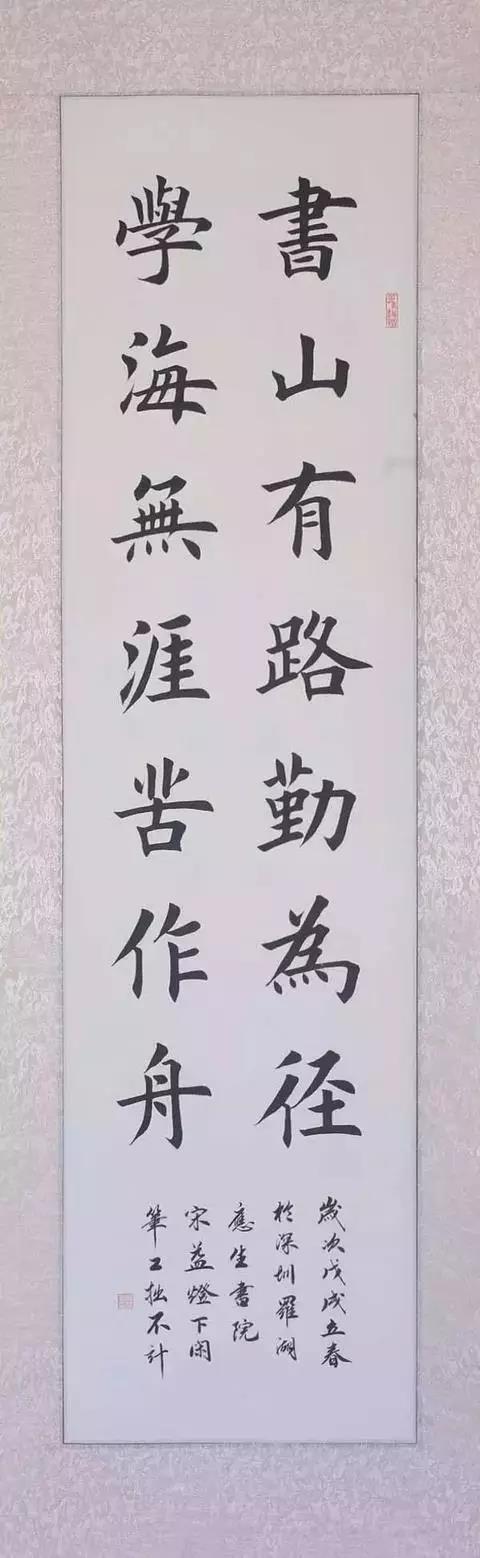 書山有路勤為径
學海無涯苦作舟
歲次戊戌立春
於深圳羅湖
應生書院
宋益燈下閑
筆工拙不計